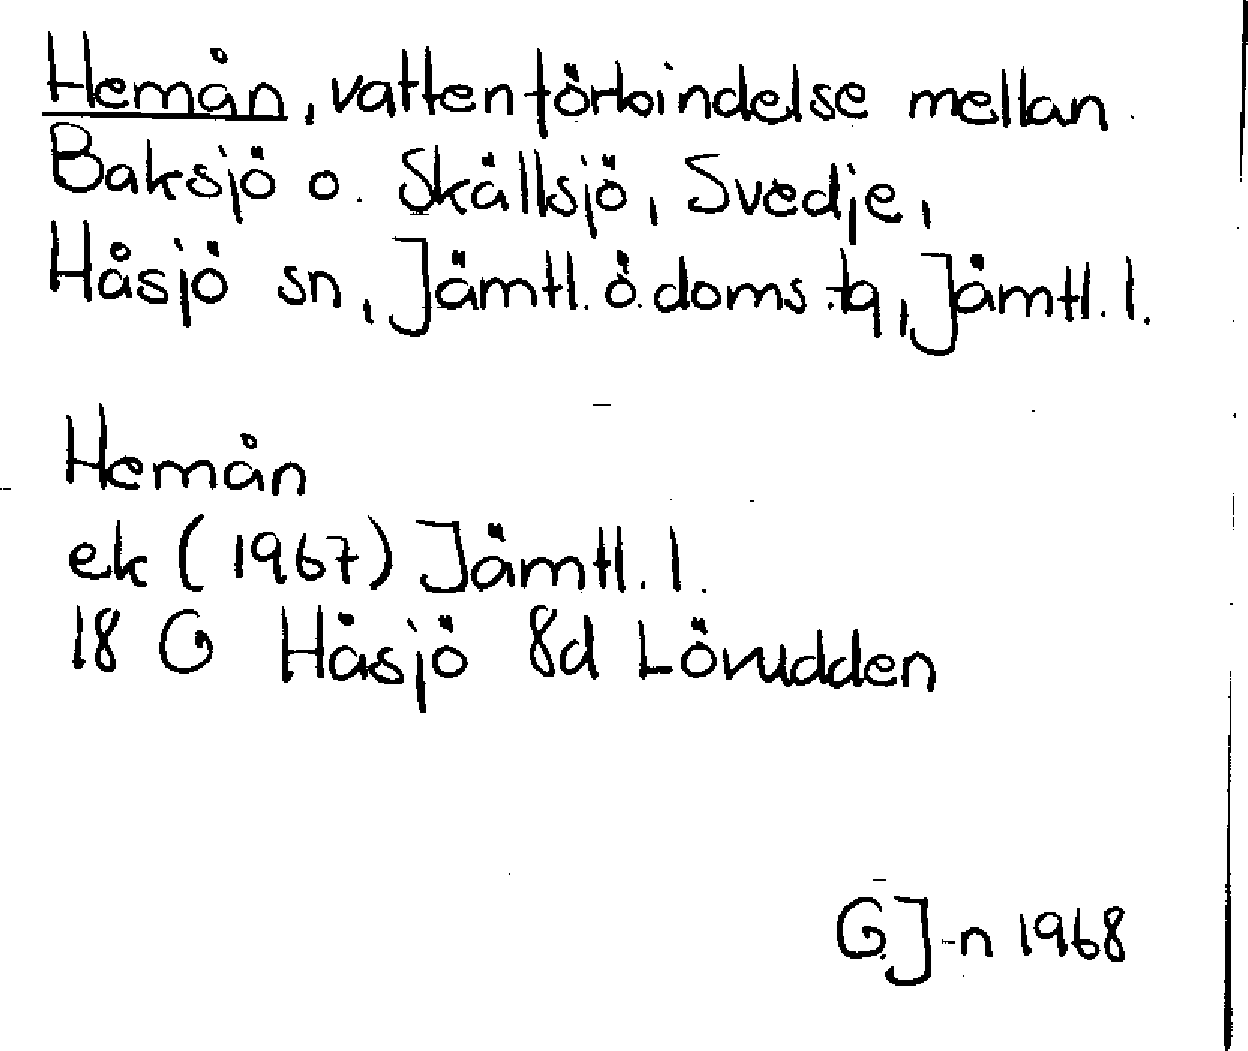 Hemån, vattenförbindelse mellan
Baksjö o. Skälksjö, Svedje,
Håsjö sn, Jämtl. ö. doms. tg, Jämtl. l.
Hemån
ek (1967) Jämtl. l.
18 G Håsjö 8d Lövudden
G.J-n 1968